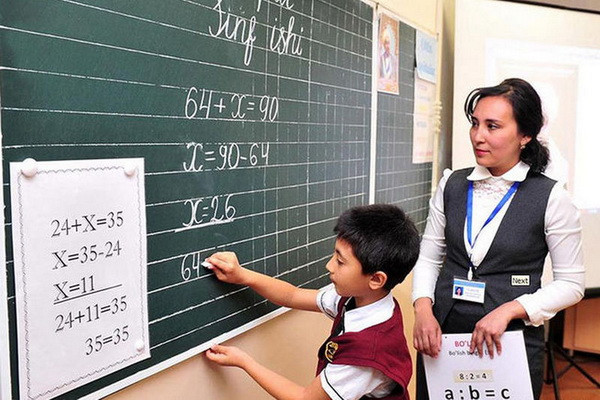 Sinf ishi
64+x=90
x=90-64
x=26
64
24+X=35
X=35-24
X=11
24+11=35
35=35
Next
8:2=4
a:b=c